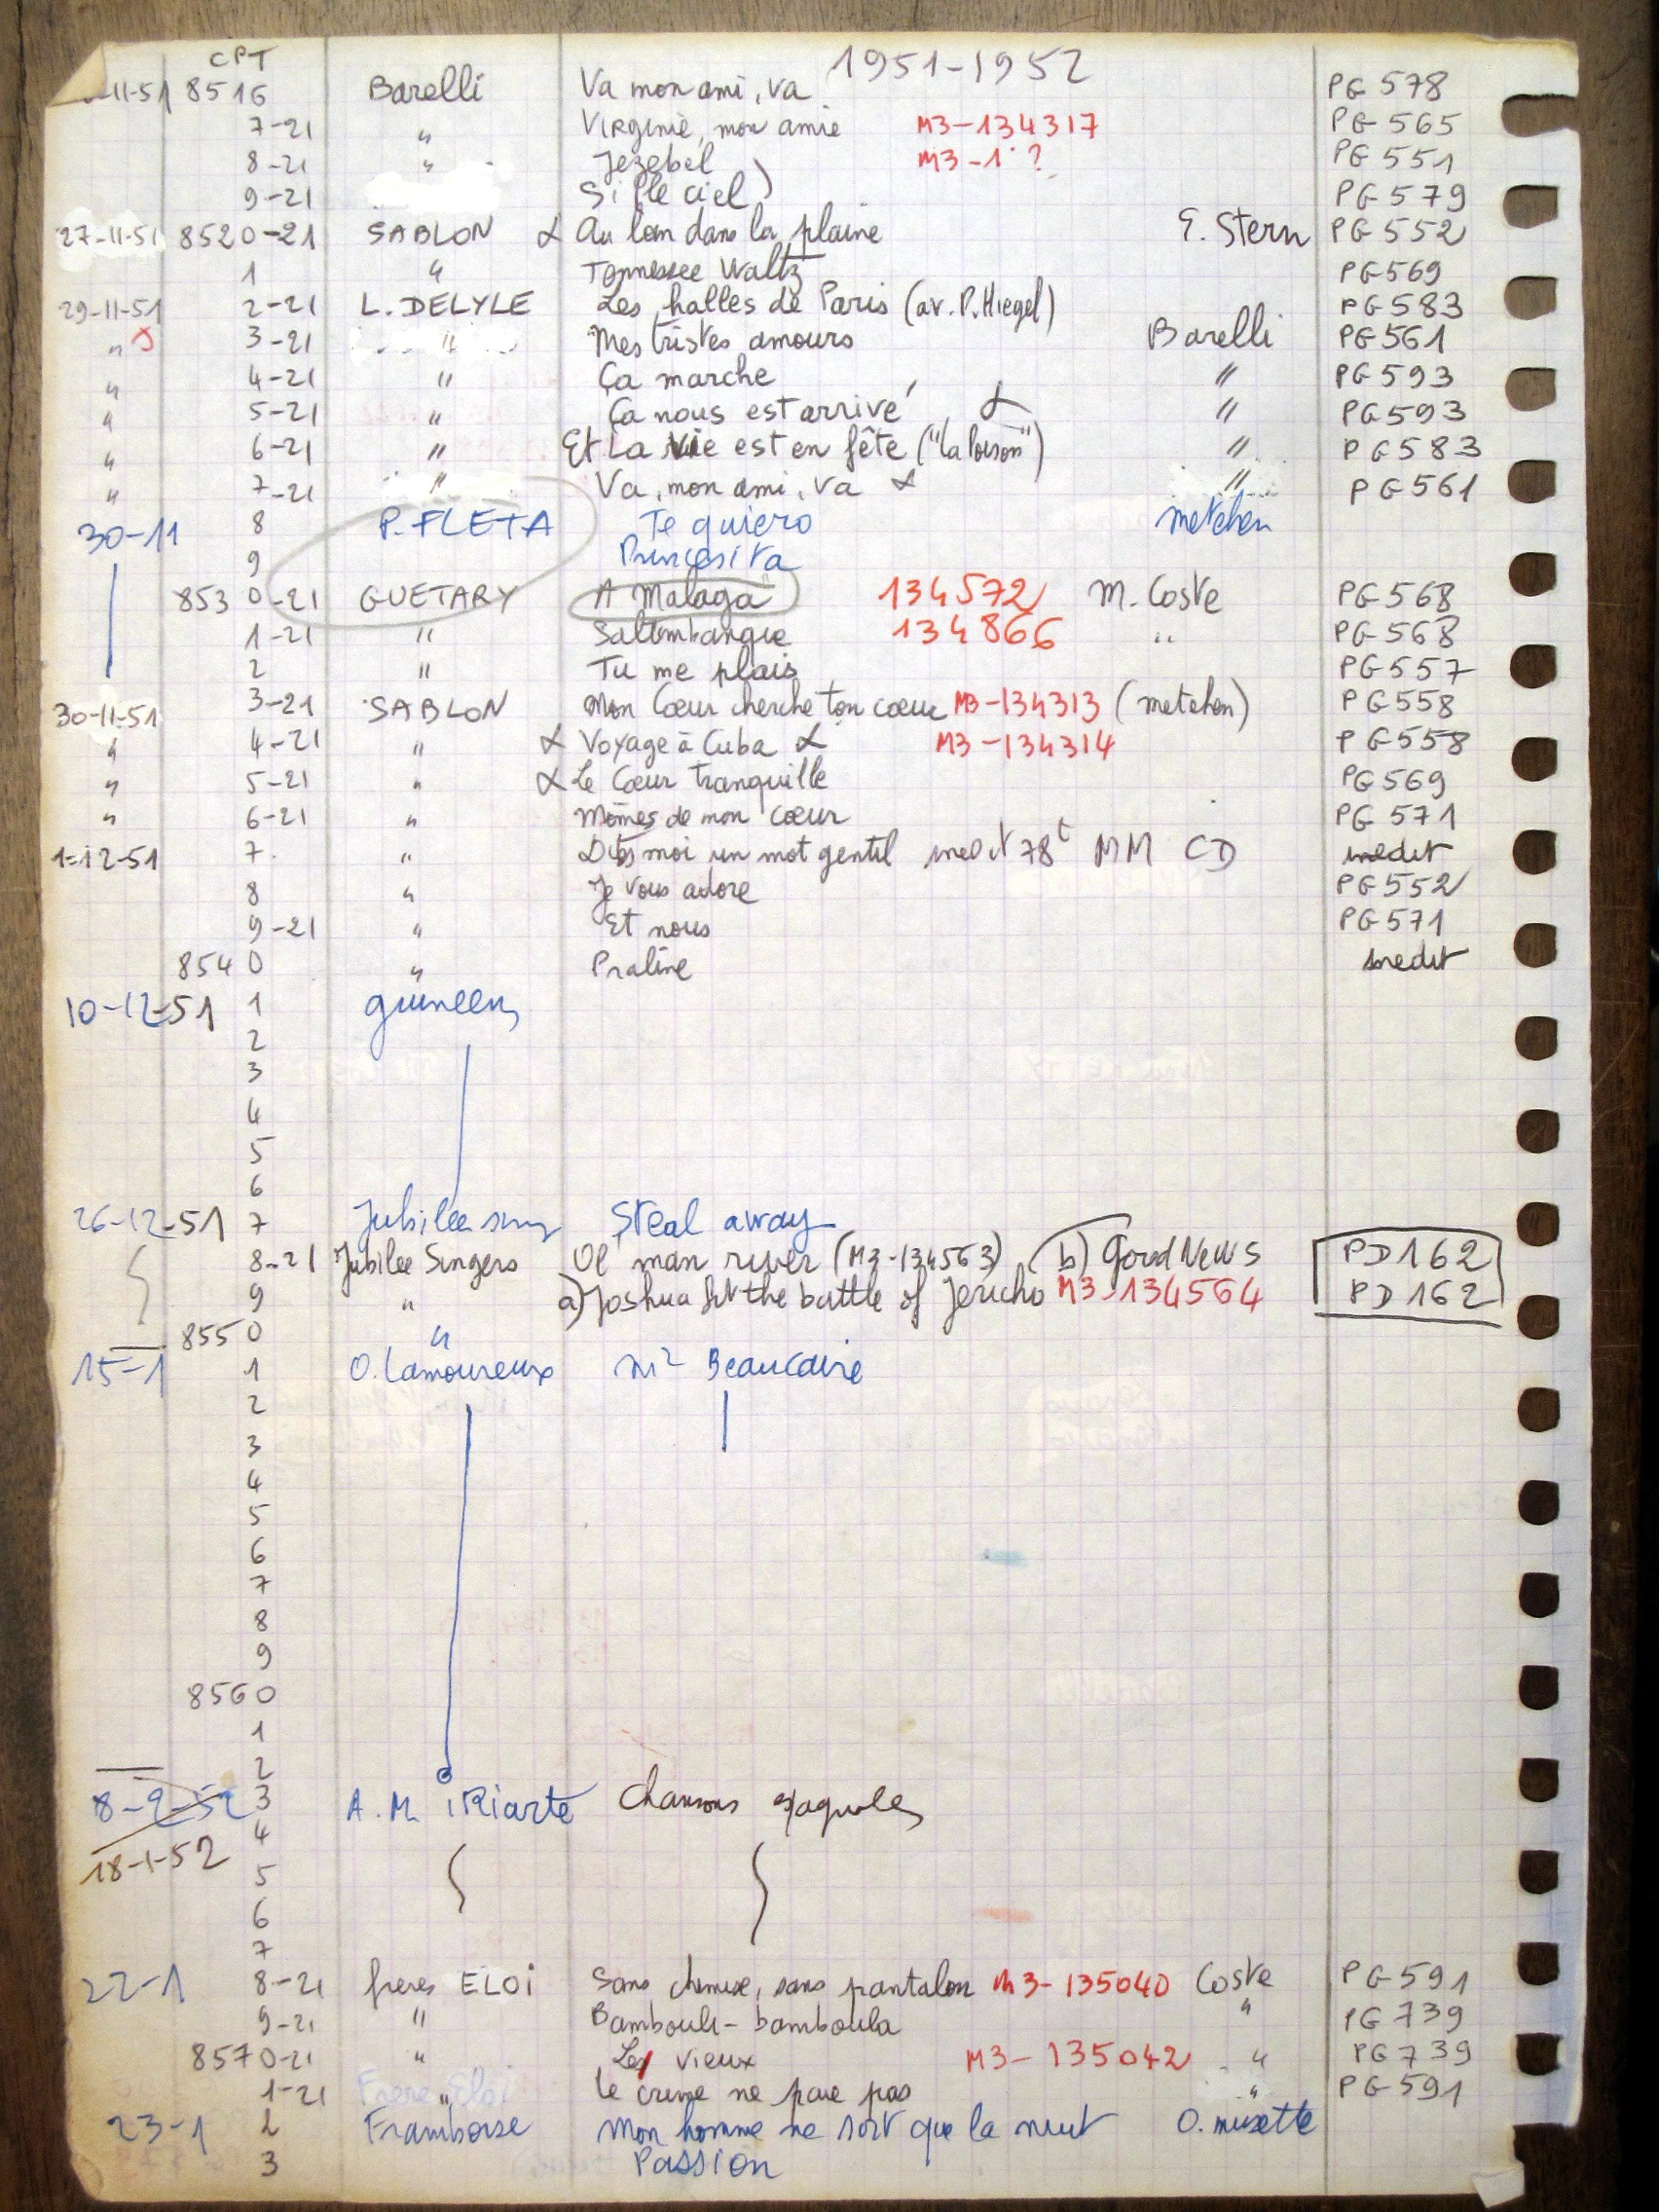 CPT 1951-1952
-11-51 8516 Barelli Va mon ami, va PG 578
7-21 " Virginie, mon amie M3-134317 PG 565
8-21 " Jezebel M3-1 ? PG 551
9-21 Si (le ciel) PG 579
27-11-51 8520-21 SABLON Au loin dans la plaine E. Stern PG 552
1 " Tennessee Waltz PG 569
29-11-51 2-21 L. DELYLE Les halles de Paris (av. P. Hiegel) PG 583
" 3-21 " Mes tristes amours Barelli PG 561
" 4-21 " Ça marche " PG 593
" 5-21 " Ça nous est arrivé " PG 593
" 6-21 " Et la vie est en fête ( ) " PG 583
" 7-21 " Va, mon ami, va " PG 561
30-11 8 P. FLETA Te quiero metehen
9 Princesita
853 0-21 GUETARY A Malaga 134572 M. Coste PG 568
1-21 " Saltimbanque 134866 " PG 568
2 " Tu me plais PG 557
30-11-51 3-21 SABLON Mon Cœur cherche ton cœur M3-134313 (metehen) PG 558
" 4-21 " Voyage à Cuba M3-134314 PG 558
" 5-21 " Le Cœur tranquille PG 569
" 6-21 " Mômes de mon cœur PG 571
1-12-51 7 " Dites moi un mot gentil inedit 78t MM CD inedit
8 " Je vous adore PG 552
9-21 " Et nous PG 571
854 0 " Praline inedit
10-12-51 1 guineens
2
3
4
5
6
26-12-51 7 Jubilee sing Steal away
8-21 Jubilee Singers Ol' man river (M3-134563) b) Good News PD 162
9 " a) Joshua fit the battle of Jericho M3-134564 PD 162
855 0 "
15-1 1 O. Lamoureux Mr Beaucaire
2
3
4
5
6
7
8
9
856 0
1
2
8-2-52 3 A. M. iRiarte Chansons espagnoles
4
18-1-52
5
6
7
22-1 8-21 freres ELOi Sans chemise, sans pantalon M3-135040 Coste PG 591
9-21 " Bambouli-bamboula " PG 739
8570-21 " Les vieux M3-135042 " PG 739
1-21 Frere Eloi " Le crime ne paie pas " PG 591
23-1 2 Framboise Mon homme ne sort que la nuit O. musette
3 Passion